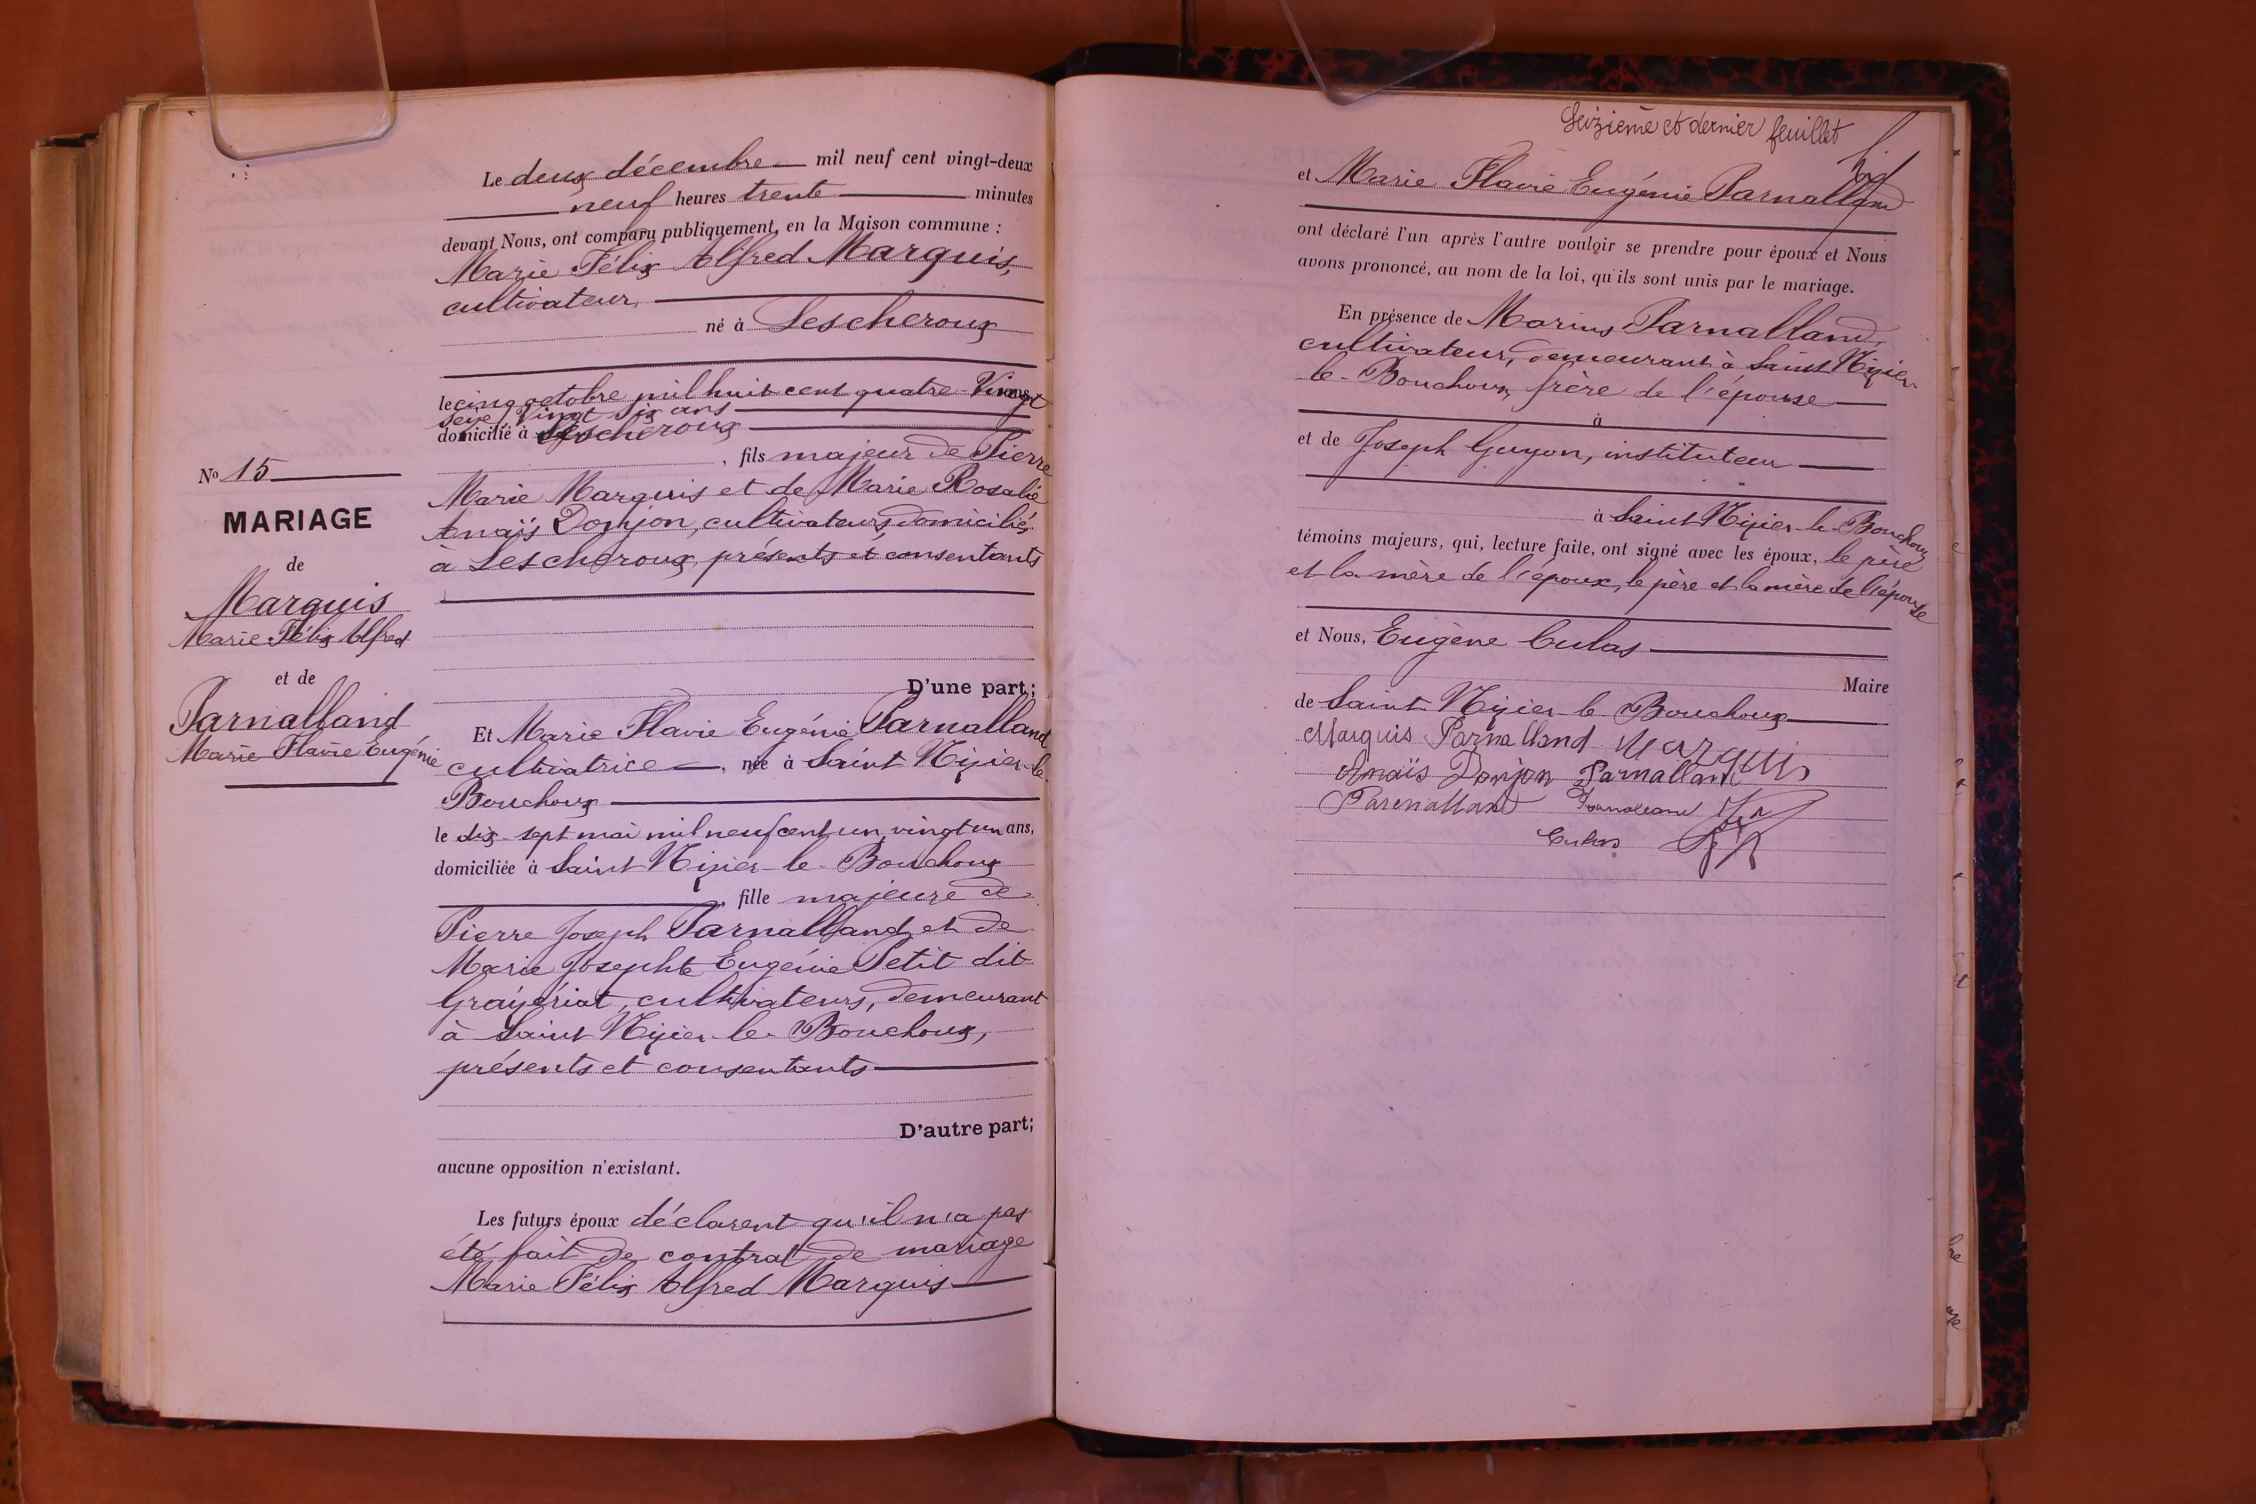 Le deux décembre mil neuf cent vingt-deux
neuf heures trente minutes
devant Nous, ont comparu publiquement, en la Maison commune :
Marie Félix Alfred Marguis,
cultivateur,
né à Lescheroux
le cinq octobre mil huit cent quatre-Vingt
seize, Vingt six ans
domicilié à Lescheroux
, fils majeur de Pierre
Marie Marguis et de Marie Rosalie
Anaïs Donjon, cultivateurs, domiciliés
à Lescheroux, présents et consentants
No 15
MARIAGE
de
Marguis
Marie Félix Alfred
et de
Parnalland
Marie Flavie Eugénie
D'une part;
Et Marie Flavie Eugénie Parnalland
cultivatrice, née à Saint Nizier-le
Bouchoux
le dix-sept mai mil neuf cent un, vingt un ans,
domiciliée à Saint Nizier-le-Bouchoux
, fille majeure de
Pierre Joseph Parnalland et de
Marie Josephte Eugénie Petit dit
cultivateurs, demeurant
à Saint Nizier-le-Bouchoux,
présents et consentants
D'autre part;
aucune opposition n'existant.
Les futurs époux déclarent qu'il n'a pas
été fait de contrat de mariage
Marie Félix Alfred Marguis
Seizième et dernier feuillet
et Marie Flavie Eugénie Parnalland
ont déclaré l'un après l'autre vouloir se prendre pour époux et Nous
avons prononcé, au nom de la loi, qu'ils sont unis par le mariage.
En présence de Marius Parnalland,
cultivateur, demeurant à Saint Nizier-
le-Bouchoux, frère de l'épouse
à
et de Joseph Guyon, instituteur
à Saint Nizier-le-Bouchoux
témoins majeurs, qui, lecture faite, ont signé avec les époux, le père
et la mère de l'époux, le père et la mère de l'épouse
et Nous, Eugène Culas
Maire
de Saint Nizier-le-Bouchoux
Marguis Parnalland Marguis
Anaïs Donjon Parnalland
Parnalland
Culas